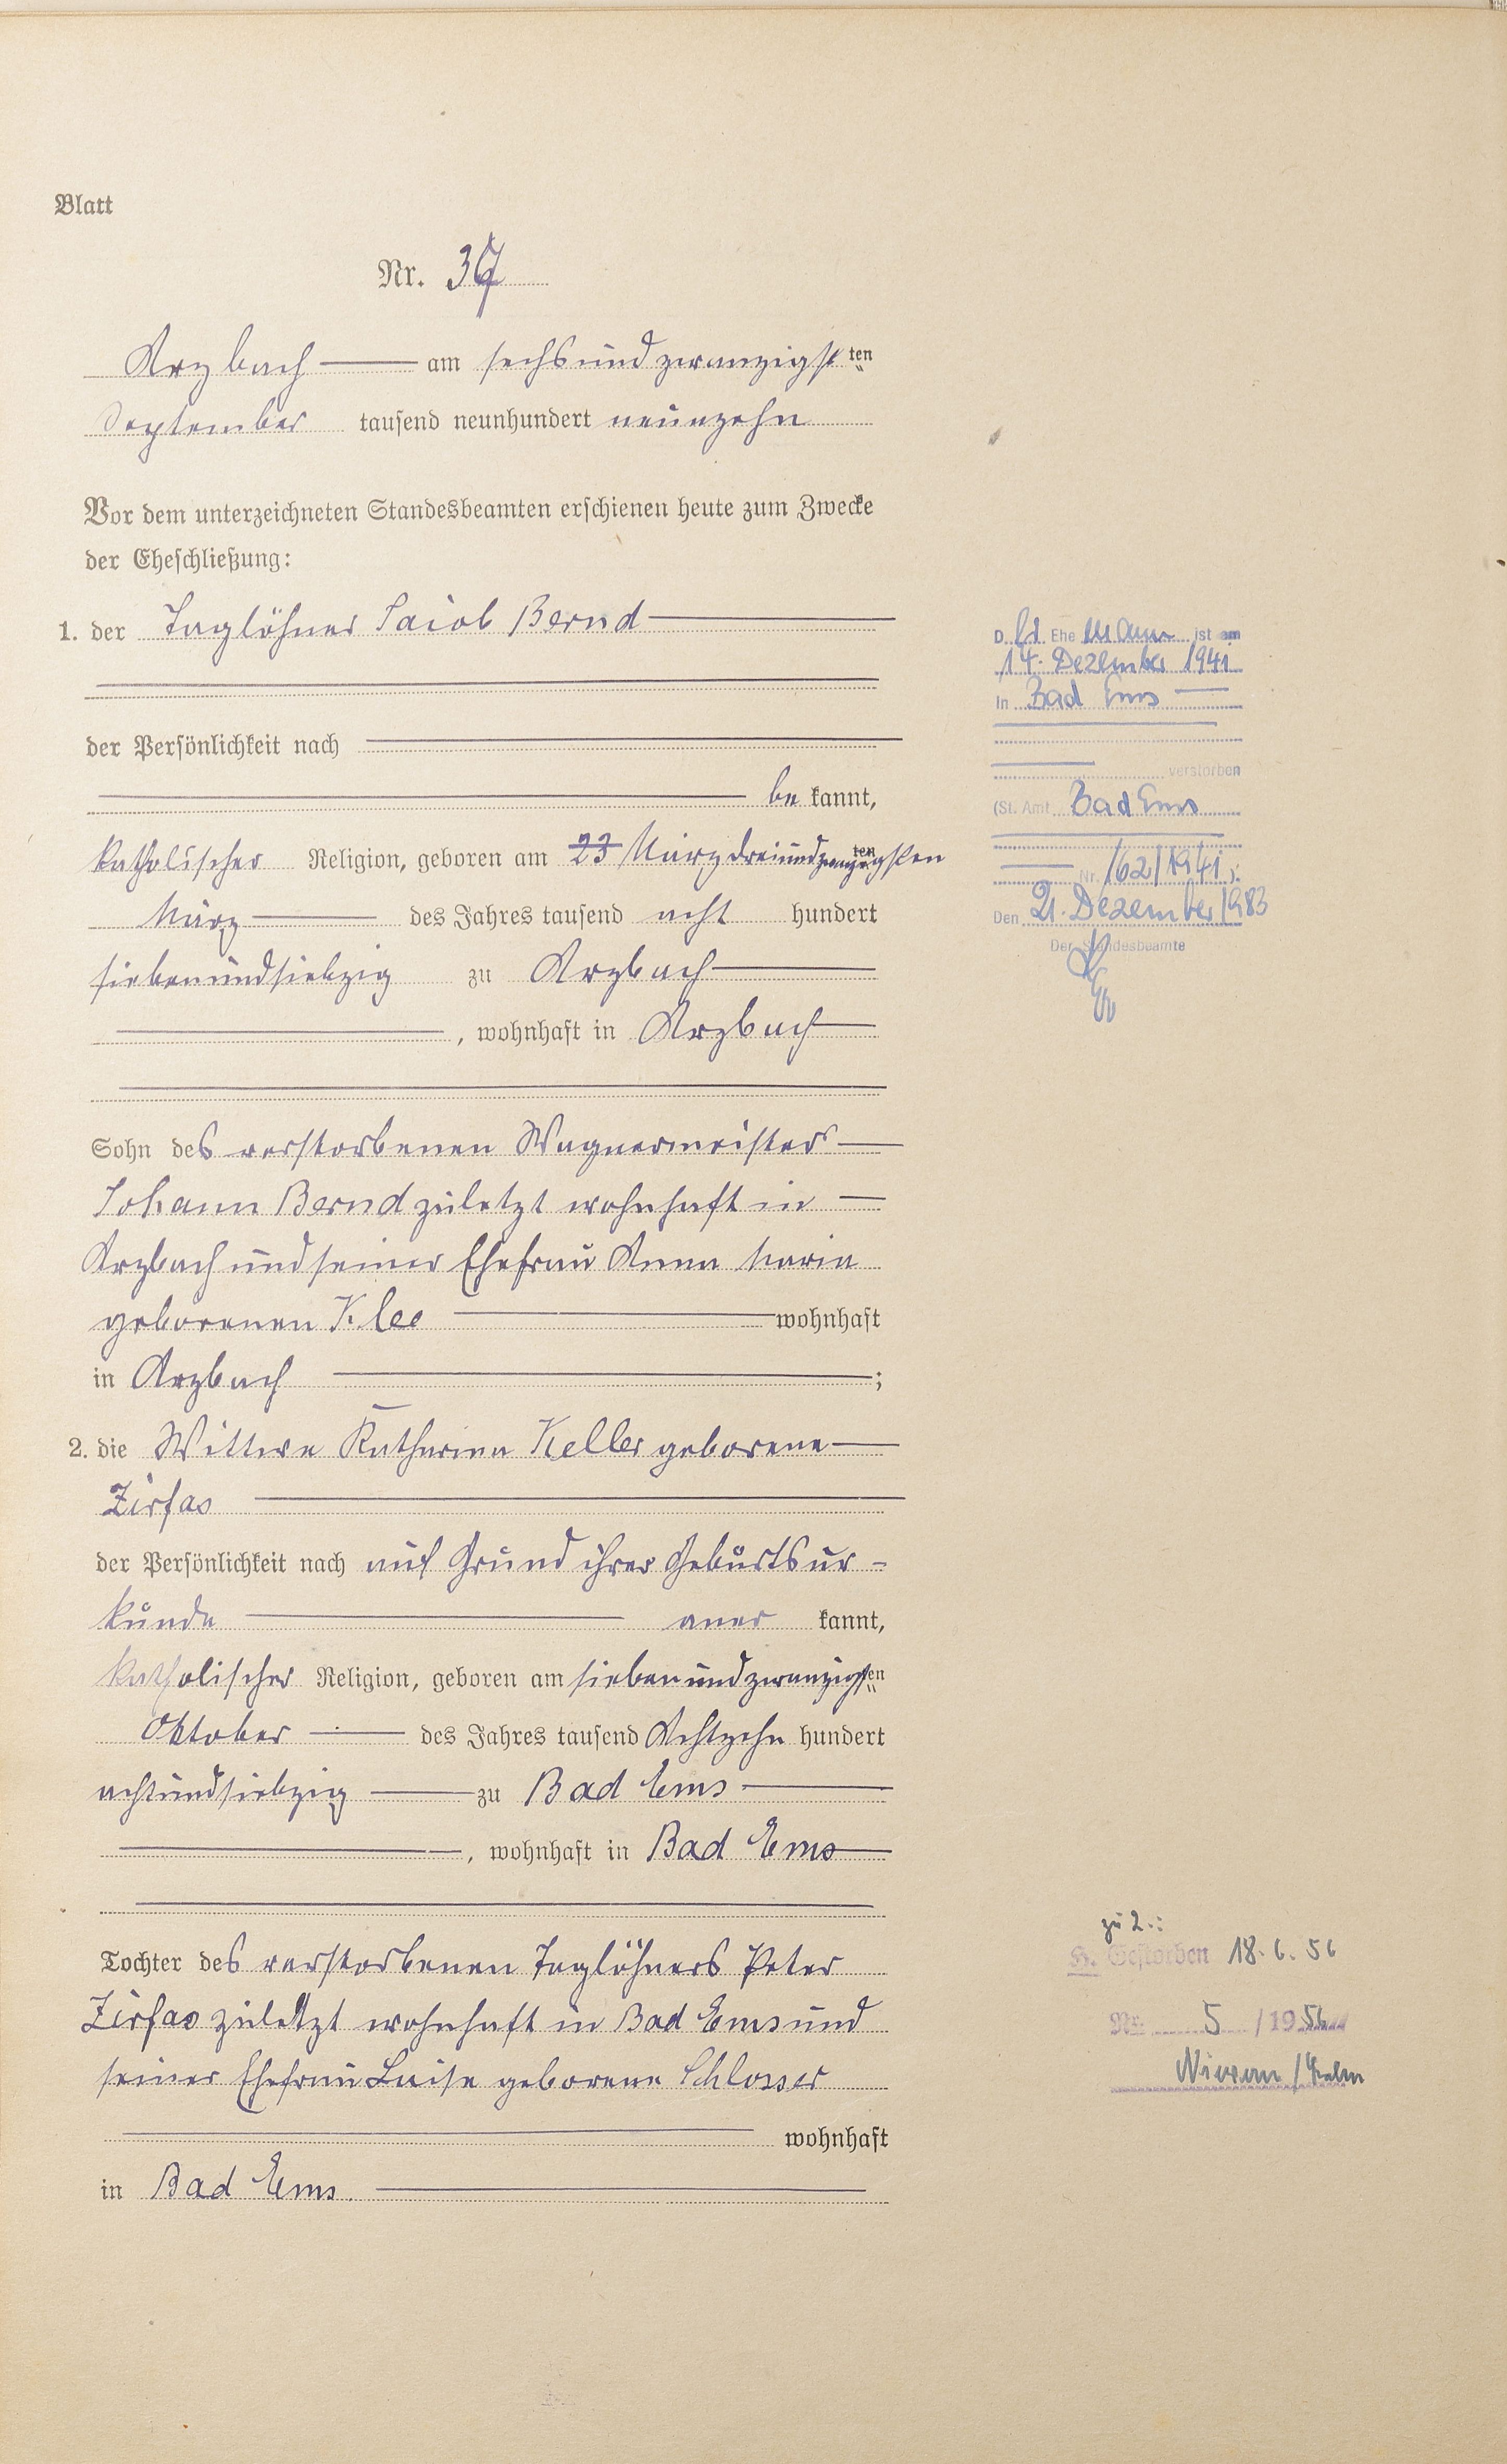 Blatt
Nr. 37
Arzbach am sechsundzwanzigsten
September tausend neunhundert neunzehn
Vor dem unterzeichneten Standesbeamten erschienen heute zum Zwecke
der Eheschließung:
1. der Taglöhner Jacob Bernd
der Persönlichkeit nach
be kannt,
katholischer Religion, geboren am 23 März dreiundzwanzigsten
März des Jahres tausend acht hundert
siebenundsiebzig zu Arzbach
, wohnhaft in Arzbach
Sohn des verstorbenen Wagnermeisters
Johann Bernd zuletzt wohnhaft in
Arzbach und seiner Ehefrau Anna Maria
geborenen Klee wohnhaft
in Arzbach ;
2. die Wittwe Katharina Keller geborene
Zirfas
der Persönlichkeit nach auf Grund ihrer Geburtsur-
kunde aner kannt,
katholischer Religion, geboren am siebenundzwanzigsten
Oktober des Jahres tausend Achtzehn hundert
achtundsiebzig zu Bad Ems
, wohnhaft in Bad Ems
Tochter des verstorbenen Taglöhners Peter
Zirfas zuletzt wohnhaft in Bad Ems und
seiner Ehefrau Luise geborene Schlosser
wohnhaft
in Bad Ems
D er Ehe Mann ist am
14. Dezember 1941
in Bad Ems
verstorben
(St. Amt Bad Ems
Nr. 162/1941).
Den 21. Dezember 1983
Der Standesbeamte
zu 2.:
H. Gestorben 18.6.56
Nr. 5 /1956
Nievern /